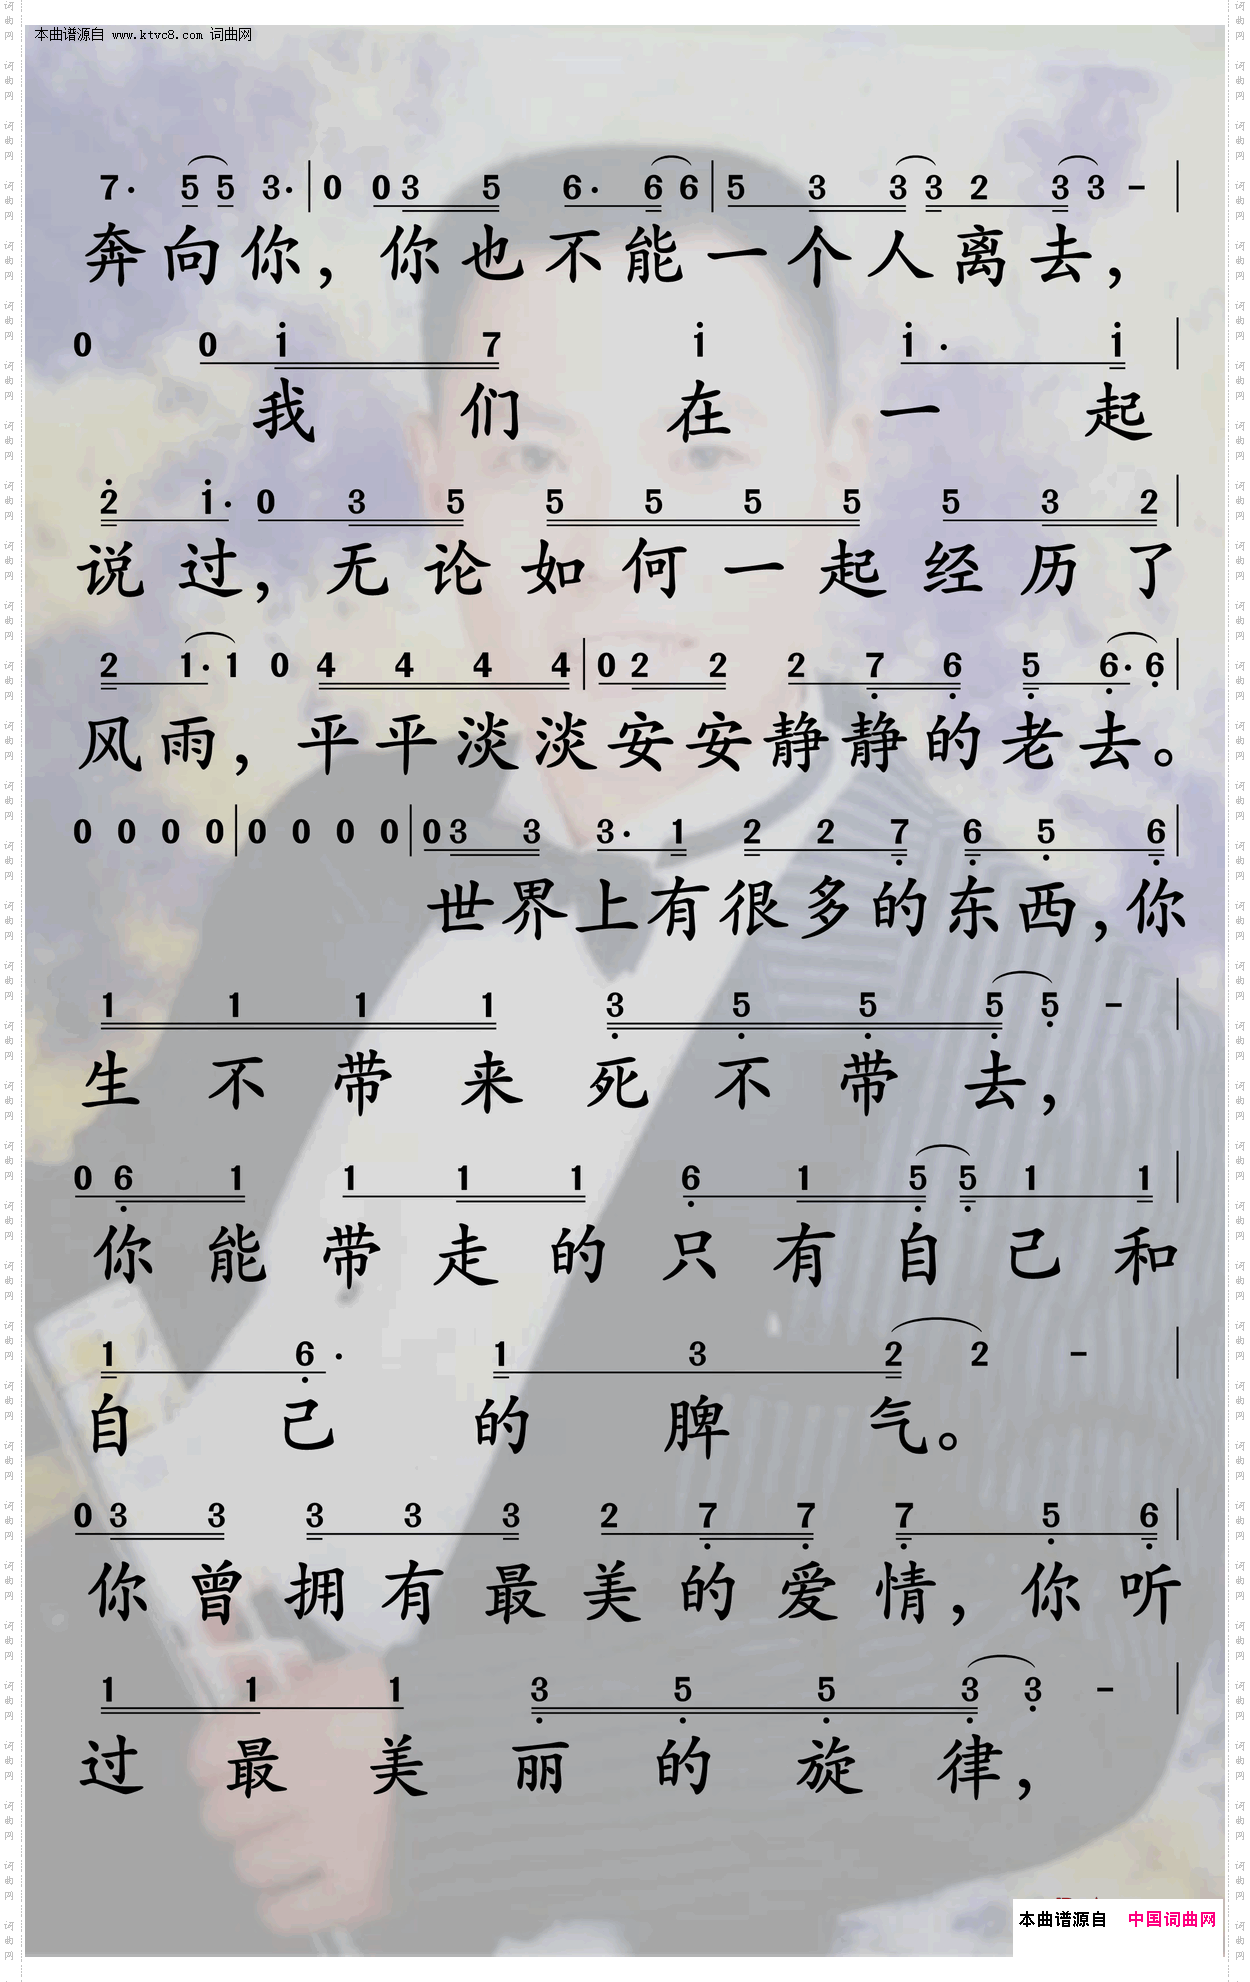 本曲谱源自 www.ktvc8.com 词曲网
7· 5 5 3· | 0 0 3 5 6· 6 6 | 5 3 3 3 2 3 3 - |
奔向你，你也不能一个人离去，
0 0 i 7 i i· i |
我们在一起
2 i· 0 3 5 5 5 5 5 5 3 2 |
说过，无论如何一起经历了
2 1· 1 0 4 4 4 4 | 0 2 2 2 7 6 5 6· 6 |
风雨，平平淡淡安安静静的老去。
0 0 0 0 | 0 0 0 0 | 0 3 3 3· 1 2 2 7 6 5 6 |
世界上有很多的东西，你
1 1 1 1 3 5 5 5 5 - |
生不带来死不带去，
0 6 1 1 1 1 6 1 5 5 1 1 |
你能带走的只有自己和
1 6· 1 3 2 2 - |
自己的脾气。
0 3 3 3 3 3 2 7 7 7 5 6 |
你曾拥有最美的爱情，你听
1 1 1 3 5 5 3 3 - |
过最美丽的旋律，
本曲谱源自 中国词曲网